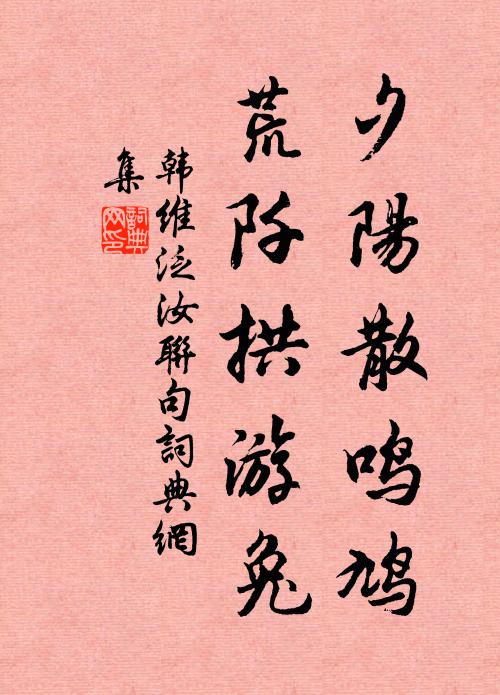 夕陽散鳴鳩
荒阡拱游兔
韩維泛汝聯句詞典網
集
詞典
网印